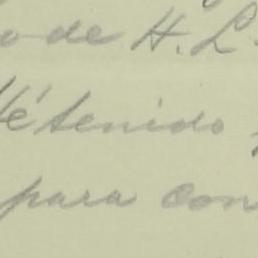 de H. L.
Hé tenido
para con